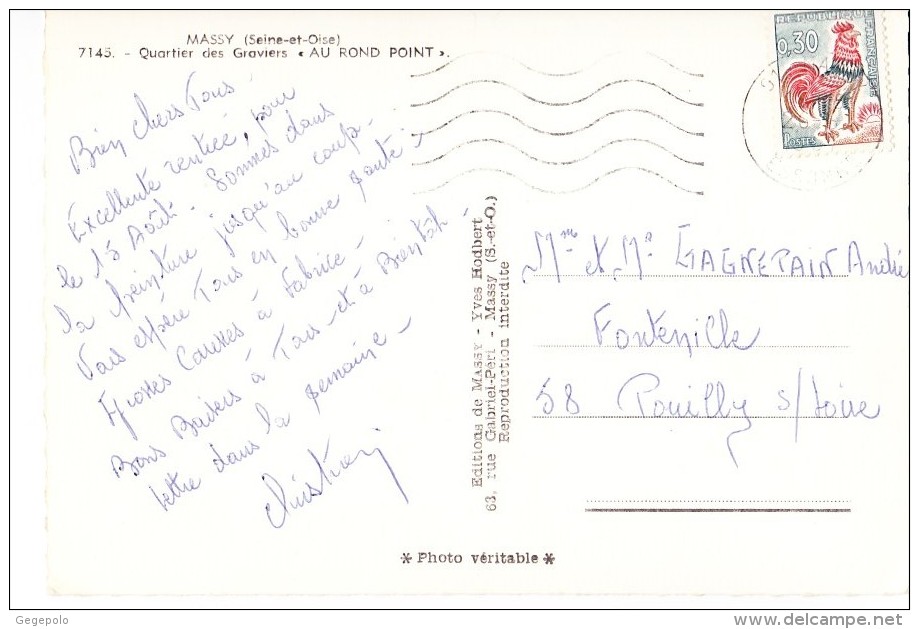 MASSY (Seine-et-Oise)
7145. - Quartier des Graviers « AU ROND POINT ».
Bien chers Tous
Excellente rentrée, pour
le 15 Août - Sommes dans
la peinture jusqu'au coup -
Vous espère Tous en bonne santé -
Grosses Caresses à Fabrice -
Bons Baisers à Tous - et à Bientôt -
lettre dans la semaine -
Editions de MASSY - Yves Hodbert
63, rue Gabriel-Péri - Massy (S.-et-O.)
Reproduction interdite
REPUBLIQUE FRANÇAISE
0,30
POSTES
Mme et Mr GAGNEPAIN André
Fontenille
58 Pouilly s/Loire
* Photo véritable *
Gegepolo
delcampe.net